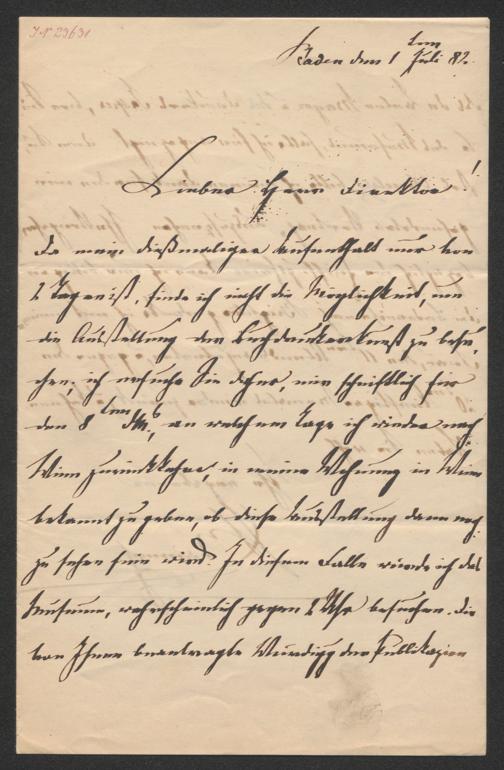 J.N 29631
Baden den 1ten Juli 82.
Lieber Herr Direktor!
Da mein dießmaliger Aufenthalt nur von
2 Tagen ist, finde ich nicht die Möglichkeit, um
die Ausstellung der Buchdruckerkunst zu besu-
chen; ich ersuche Sie daher, mir schriftlich für
den 8ten d. M., an welchem Tage ich wieder nach
Wien zurückkehre, in meine Wohnung in Wien
bekannt zu geben, ob diese Ausstellung dann noch
zu sehen sein wird. In diesem Falle würde ich das
Museum, wahrscheinlich gegen 2 Uhr besuchen. Die
von Ihnen beantragte der Publikazion